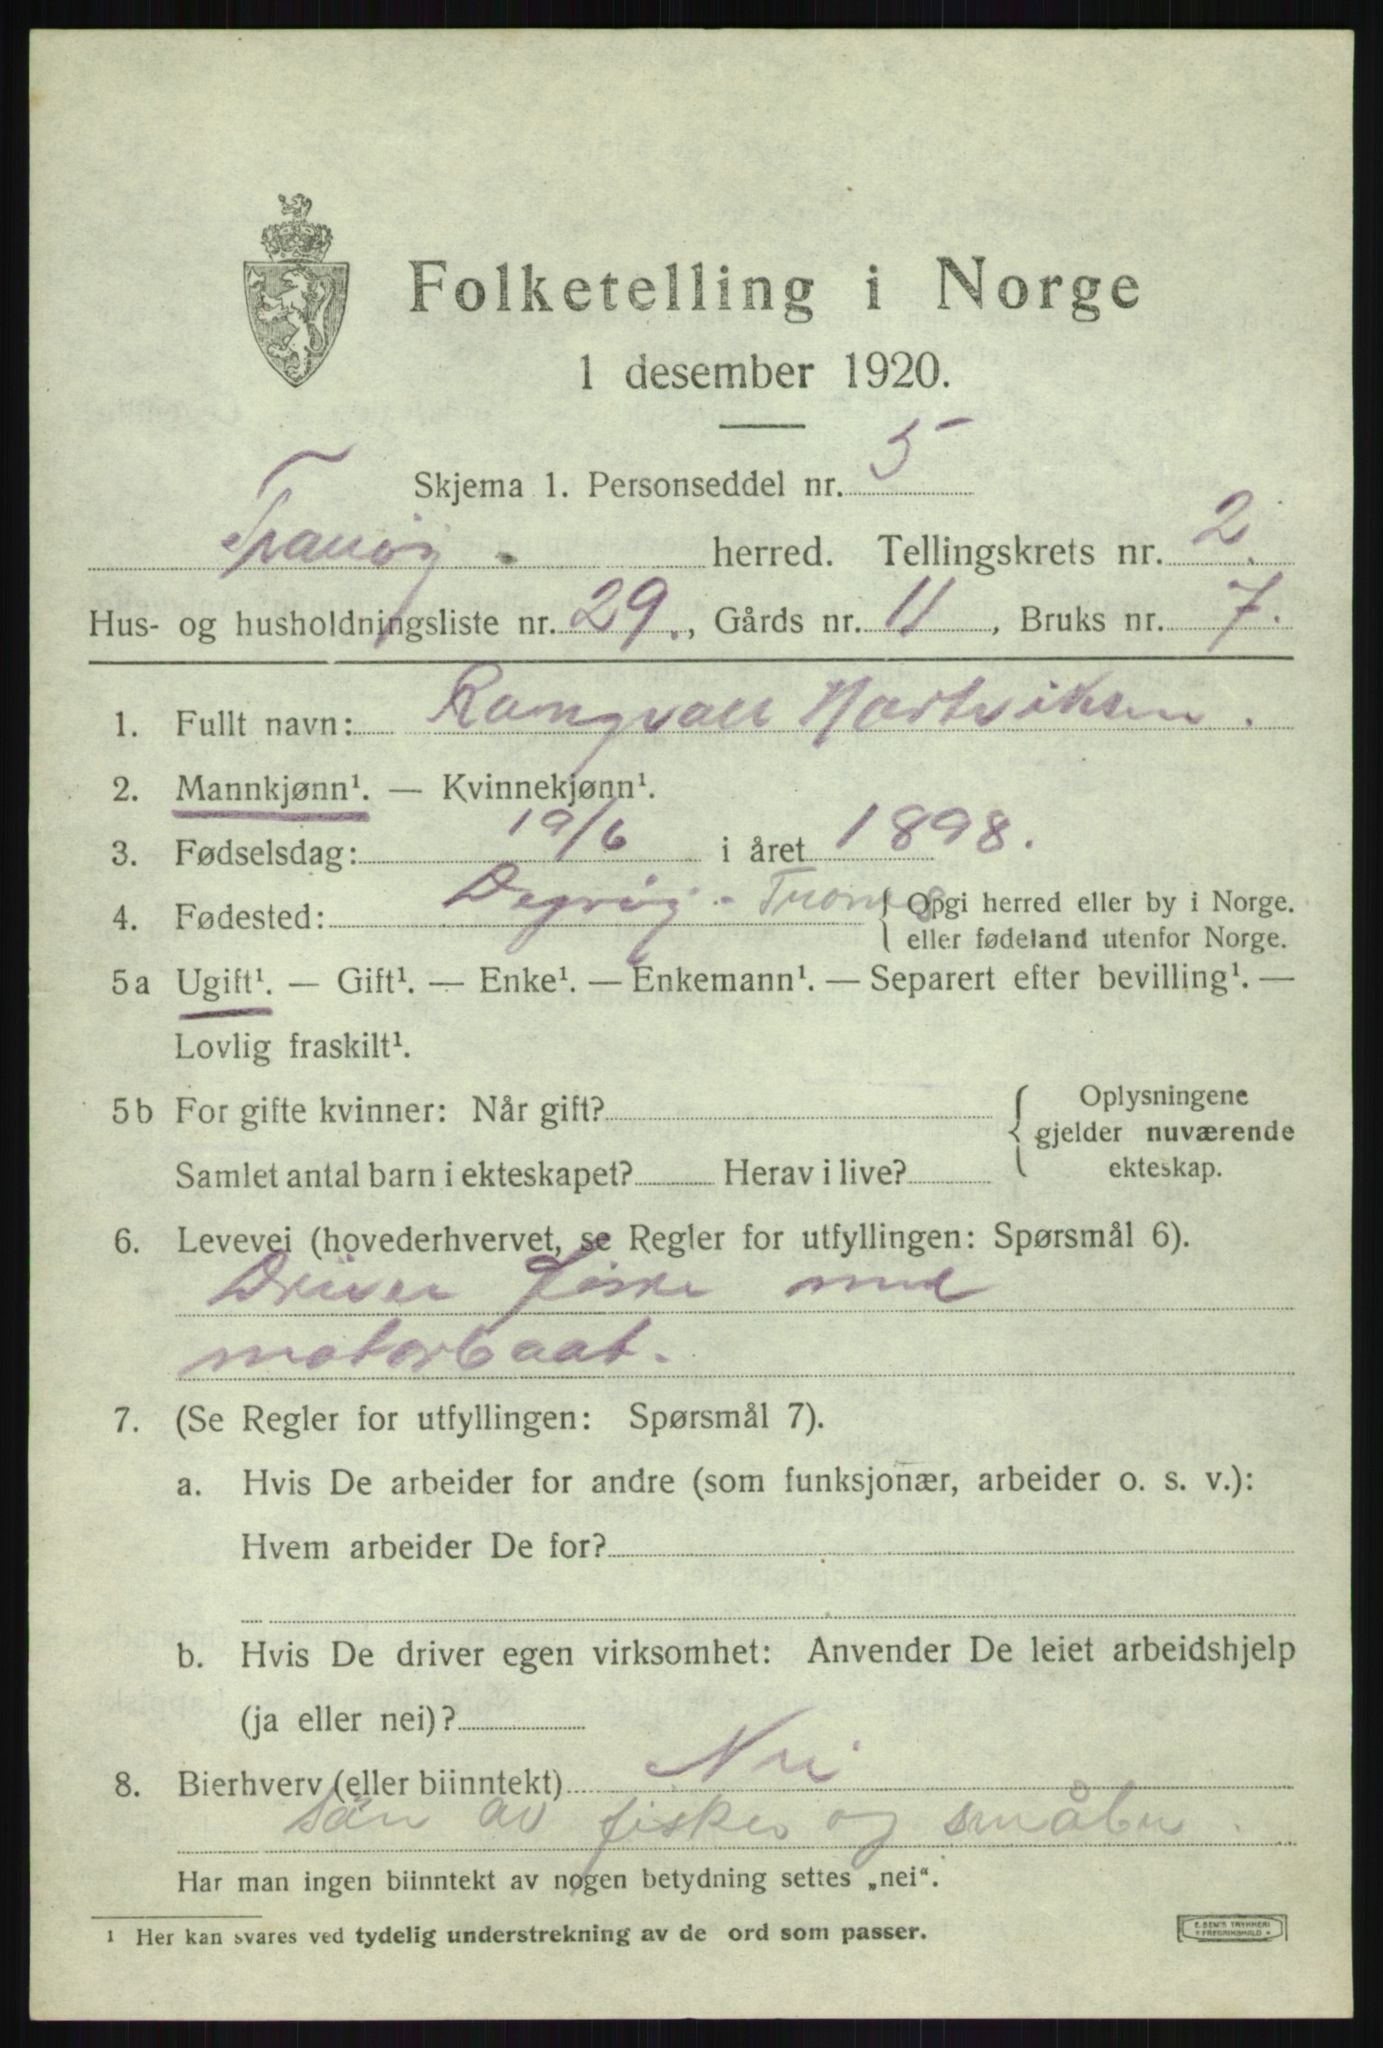 Folketelling i Norge
1 desember 1920.
Skjema 1. Personseddel nr. 5
Tranøy herred. Tellingskrets nr. 2.
Hus- og husholdningsliste nr. 29., Gårds nr. 11, Bruks nr. 7.
1. Fullt navn: Hartviksen.
2. Mannkjønn¹. — Kvinnekjønn¹.
3. Fødselsdag: 19/6 i året 1898.
4. Fødested: Dyrøy - Troms { Opgi herred eller by i Norge.
eller fødeland utenfor Norge.
5a Ugift¹. — Gift¹. — Enke¹. — Enkemann¹. — Separert efter bevilling¹. —
Lovlig fraskilt¹.
5b For gifte kvinner: Når gift? { Oplysningene
gjelder nuværende
Samlet antal barn i ekteskapet? Herav i live? ekteskap.
6. Levevei (hovederhvervet, se Regler for utfyllingen: Spørsmål 6).
Driver fiske med
motorbaat.
7. (Se Regler for utfyllingen: Spørsmål 7).
a. Hvis De arbeider for andre (som funksjonær, arbeider o. s. v.):
Hvem arbeider De for?
b. Hvis De driver egen virksomhet: Anvender De leiet arbeidshjelp
(ja eller nei)?
8. Bierhverv (eller biinntekt) Nei
sön av fisker og småbr.
Har man ingen biinntekt av nogen betydning settes „nei“.
¹ Her kan svares ved tydelig understrekning av de ord som passer.
E. SEM'S TRYKKERI
FREDRIKSHALD